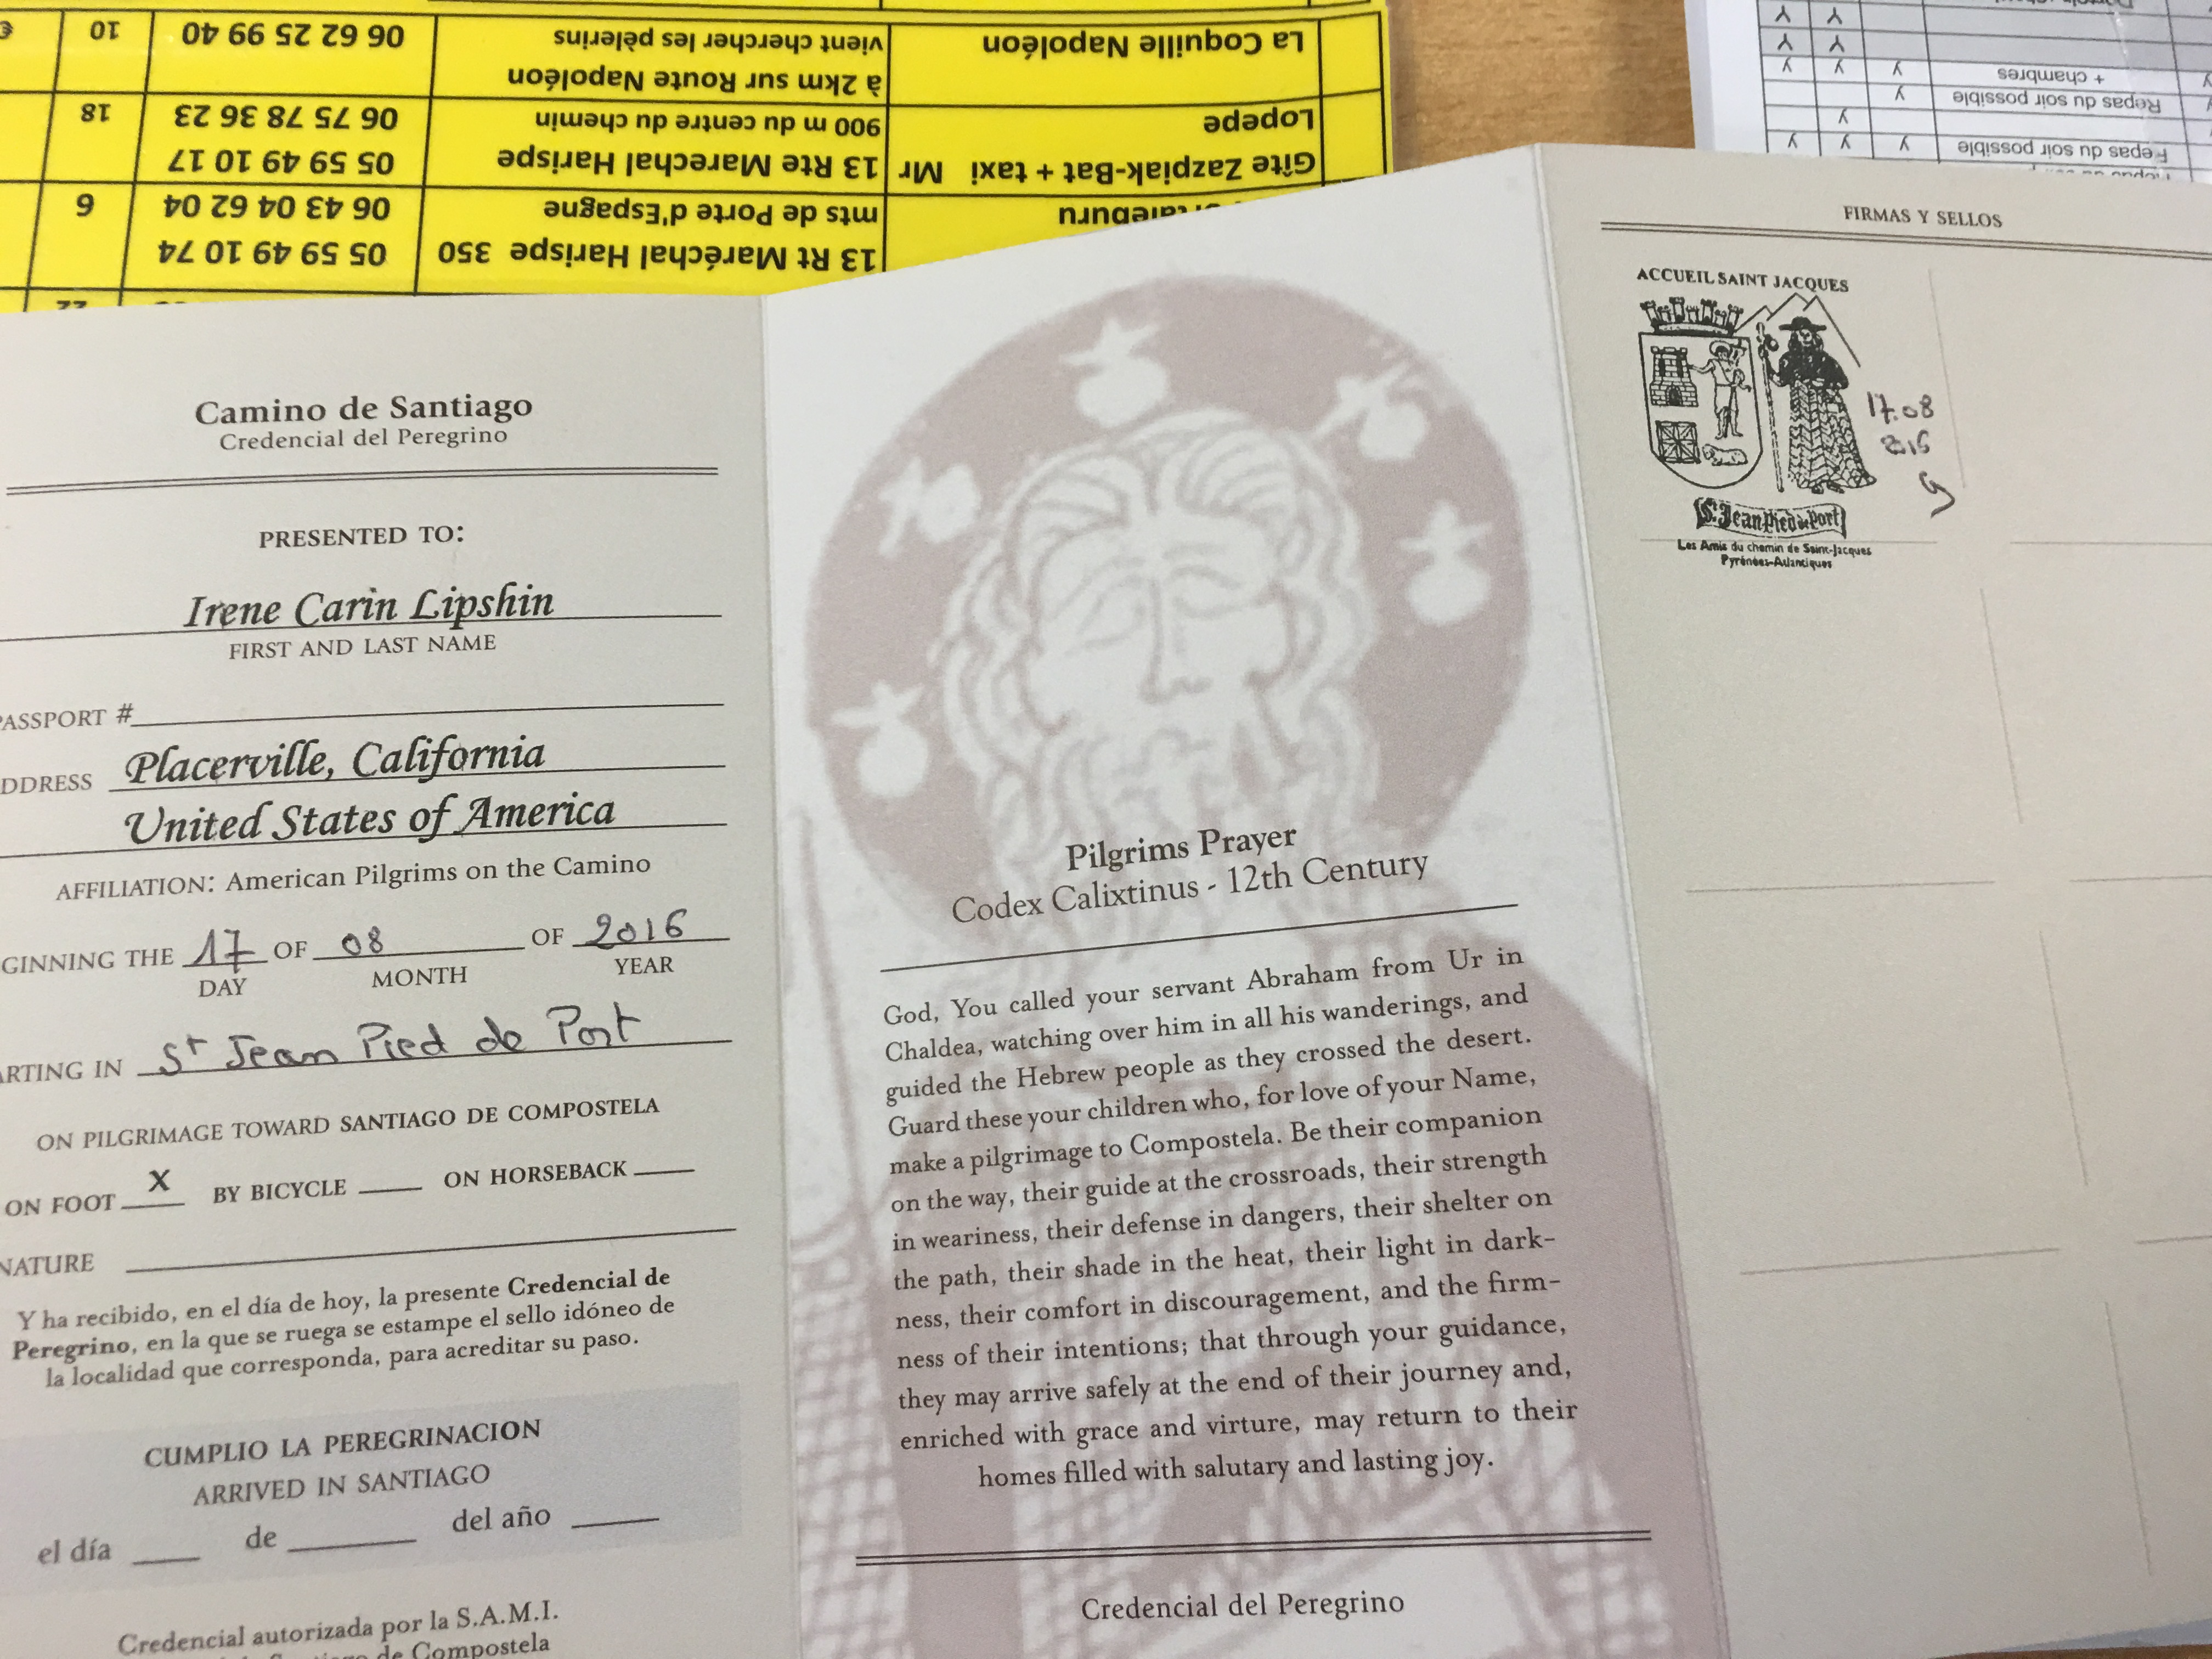 La Coquille Napoléon
vient chercher les pèlerins
à 2km sur Route Napoléon
06 62 25 99 40
10
€
Gîte Zazpiak-Bat + taxi Mr
Lopepe
13 Rte Marechal Harispe
900 m du centre du chemin
05 59 49 10 17
06 75 78 36 23
18
13 Rt Maréchal Harispe 350
mts de Porte d'Espagne
05 59 49 10 74
06 43 04 62 04
6
22
Y Y
Y Y
+ chambres Y Y Y
Repas du soir possible Y
Y
Repas du soir possible Y Y Y
Camino de Santiago
Credencial del Peregrino
PRESENTED TO:
Irene Carin Lipshin
FIRST AND LAST NAME
PASSPORT #
DDRESS Placerville, California
United States of America
AFFILIATION: American Pilgrims on the Camino
GINNING THE 17 OF 08 OF 2016
DAY MONTH YEAR
ARTING IN St Jean Pied de Port
ON PILGRIMAGE TOWARD SANTIAGO DE COMPOSTELA
ON FOOT X BY BICYCLE ON HORSEBACK
NATURE
Y ha recibido, en el día de hoy, la presente Credencial de
Peregrino, en la que se ruega se estampe el sello idóneo de
la localidad que corresponda, para acreditar su paso.
CUMPLIO LA PEREGRINACION
ARRIVED IN SANTIAGO
el día de del año
Credencial autorizada por la S.A.M.I.
de Compostela
Pilgrims Prayer
Codex Calixtinus - 12th Century
God, You called your servant Abraham from Ur in
Chaldea, watching over him in all his wanderings, and
guided the Hebrew people as they crossed the desert.
Guard these your children who, for love of your Name,
make a pilgrimage to Compostela. Be their companion
on the way, their guide at the crossroads, their strength
in weariness, their defense in dangers, their shelter on
the path, their shade in the heat, their light in dark-
ness, their comfort in discouragement, and the firm-
ness of their intentions; that through your guidance,
they may arrive safely at the end of their journey and,
enriched with grace and virture, may return to their
homes filled with salutary and lasting joy.
Credencial del Peregrino
FIRMAS Y SELLOS
ACCUEIL SAINT JACQUES
17.08
2016
St Jean Pied de Port
Les Amis du chemin de Saint-Jacques
Pyrénées-Atlantiques